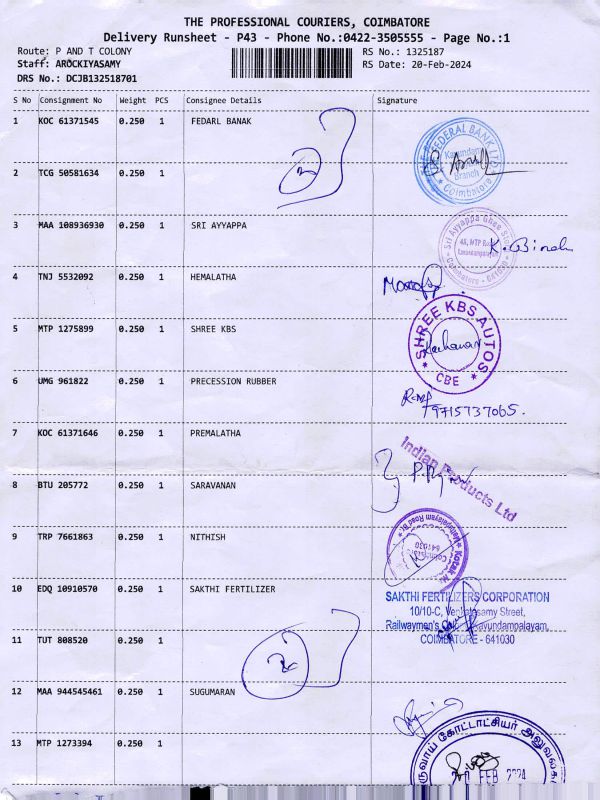 THE PROFESSIONAL COURIERS, COIMBATORE
Delivery Runsheet - P43 - Phone No.:0422-3505555 - Page No.:1
Route: P AND T COLONY
RS No.: 1325187
Staff: AROCKIYASAMY
RS Date: 20-Feb-2024
DRS No.: DCJB132518701
S No Consignment No Weight PCS Consignee Details Signature
1 KOC 61371545 0.250 1 FEDARL BANAK
FEDERAL BANK LTD
Branch
Coimbatore
2 TCG 50581634 0.250 1
3 MAA 108936930 0.250 1 SRI AYYAPPA
Sri Ayyappa Ghee
K. Bindu
4 TNJ 5532092 0.250 1 HEMALATHA
5 MTP 1275899 0.250 1 SHREE KBS
SHREE KBS AUTOS
CBE
6 UMG 961822 0.250 1 PRECESSION RUBBER
9715737065.
7 KOC 61371646 0.250 1 PREMALATHA
Indian Products Ltd
8 BTU 205772 0.250 1 SARAVANAN
9 TRP 7661863 0.250 1 NITHISH
Kotak
641030
10 EDQ 10910570 0.250 1 SAKTHI FERTILIZER
SAKTHI FERTILIZERS CORPORATION
10/10-C, Venkatasamy Street,
Railwaymen's Kavundampalayam,
COIMBATORE - 641030
11 TUT 808520 0.250 1
12 MAA 944545461 0.250 1 SUGUMARAN
13 MTP 1273394 0.250 1
கோட்டாட்சியர்
FEB 2024